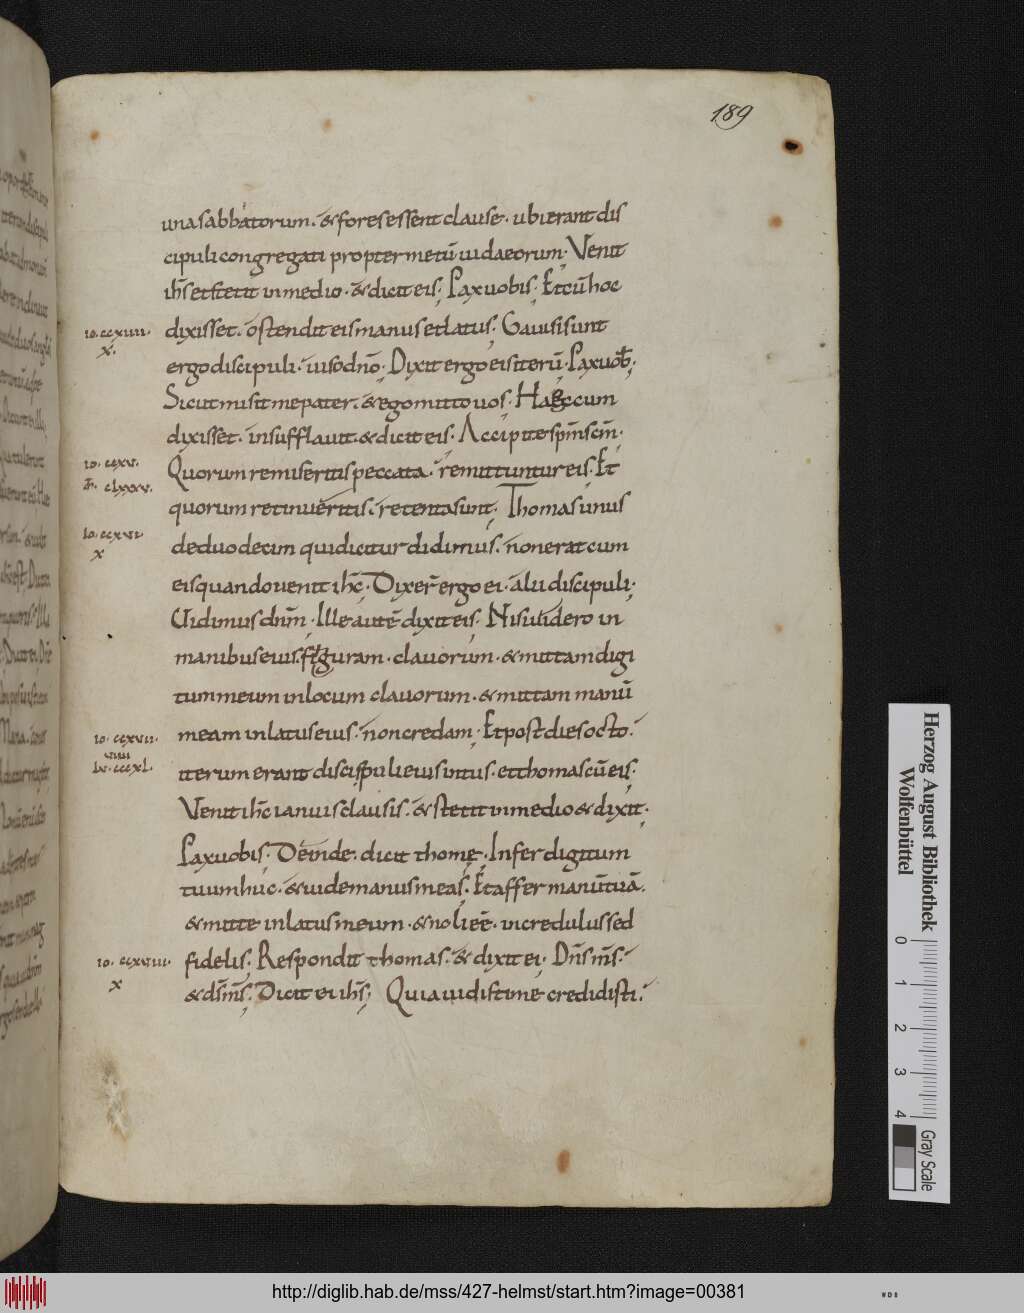 189
una sabbatorum. & fores essent clause. ubi erant dis
cipuli congregati propter metū iudaeorum. Venit
ih̄s et stetit in medio. & dicit eis. Pax uobis. Et cū hoc
io. ccxiiii.
x.
dixisset. ostendit eis manus et latus. Gauisi sunt
ergo discipuli. uiso dn̄o. Dixit ergo eis iterū. Pax uob;
Sicut misit me pater. & ego mitto uos. Haec cum
dixisset. insufflauit. & dicit eis. Accipite sp̄m sc̄m.
io. ccxv.
clxxxv.
Quorum remiseritis peccata. remittuntur eis. Et
quorum retinueritis. retenta sunt. Thomas unus
io. ccxvi.
x
de duodecim qui dicitur didimus. non erat cum
eis quando uenit ih̄c. Dixer̄ ergo ei. alii discipuli.
Uidimus dn̄m. Ille autē dixit eis. Nisi uidero in
manibus eius. figuram. clauorum. & mittam digi
tum meum in locum clauorum. & mittam manū
io. ccxvii.
viiii
lu. cccxl.
meam in latus eius. non credam. Et post dies octo.
iterum erant discipuli eius intus. et thomas cū eis.
Venit ih̄c ianuis clausis. & stetit in medio & dixit.
Pax uobis. Deinde. dicit thomę. Infer digitum
tuum huc. & uide manus meas. Et affer manū tuā.
& mitte in latus meum. & noli eē. incredulus sed
io. ccxviii.
x
fidelis. Respondit thomas. & dixit ei. Dn̄s m̄s.
& d̄s m̄s. Dicit ei ih̄s; Quia uidisti me credidisti.
Herzog August Bibliothek
Wolfenbüttel
0 1 2 3 4
Gray Scale
http://diglib.hab.de/mss/427-helmst/start.htm?image=00381